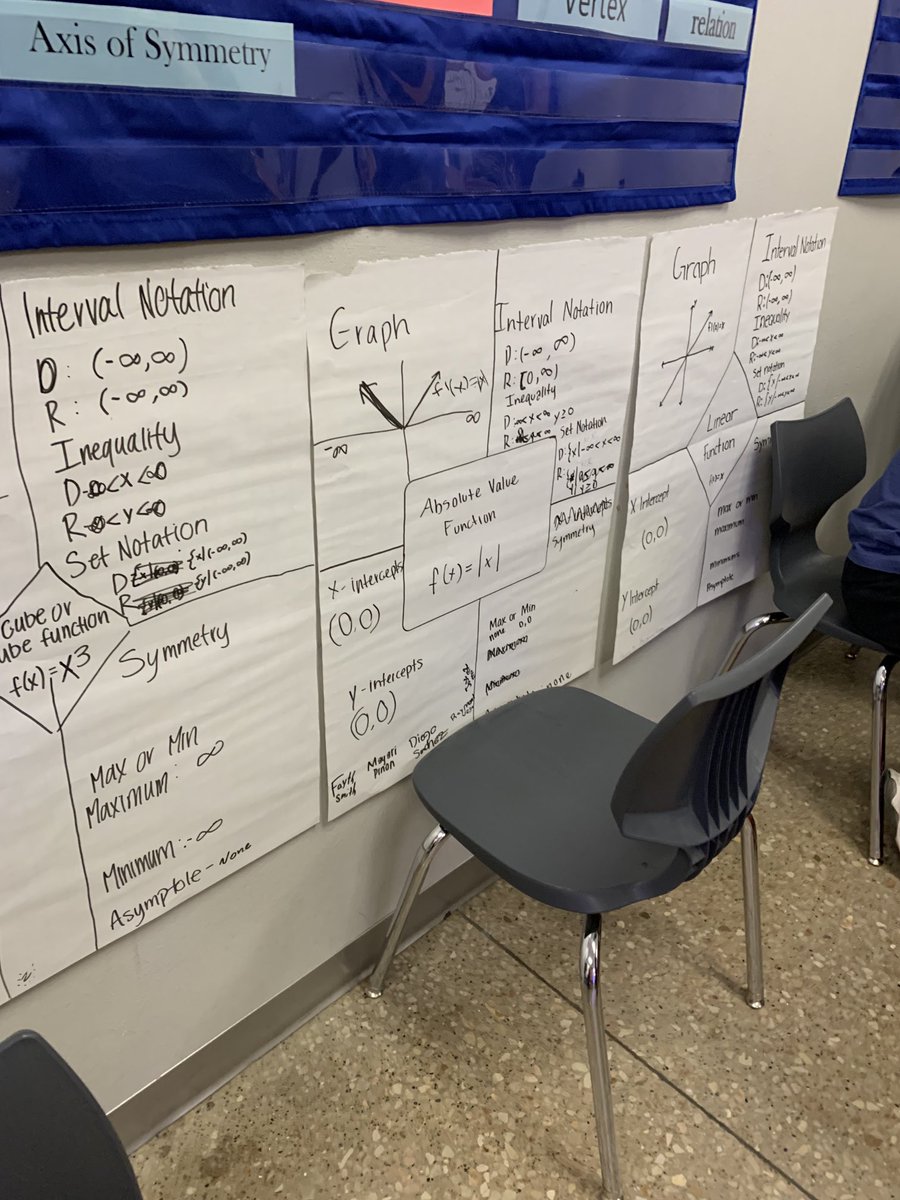 Axis of Symmetry
Vertex
relation
Interval Notation
D: (-∞,∞)
R: (-∞,∞)
Inequality
D-∞<x<∞
R-∞<y<∞
Set Notation
D {x/(-∞,∞)
R {y/(-∞,∞)
Cube or
ube function
f(x)=x³
Symmetry
Max or Min
Maximum: ∞
Minimum:-∞
Asymptote-None
Graph
f(x)=|x|
-∞
∞
Interval Notation
D: (-∞, ∞)
R: [0,∞)
Inequality
D: -∞<x<∞
R: y≥0
Set Notation
D: {x|-∞<x<∞
y≥0
Absolute Value
Function
f(x)=|x|
X-intercepts
(0,0)
Y-intercepts
(0,0)
Symmetry
Max or Min
none 0,0
none
Mayari
Pinon
Diego
Smith
Graph
f(x)=x
Interval Notation
D:(-∞,∞)
R:(-∞,∞)
Inequality
D:-∞<x<∞
R:-∞<y<∞
Set notation
D: {x/-∞<x<∞
Linear
function
f(x)=x
X Intercept
(0,0)
Y Intercept
(0,0)
Symm
max or min
maximum
minimum
Asymptote